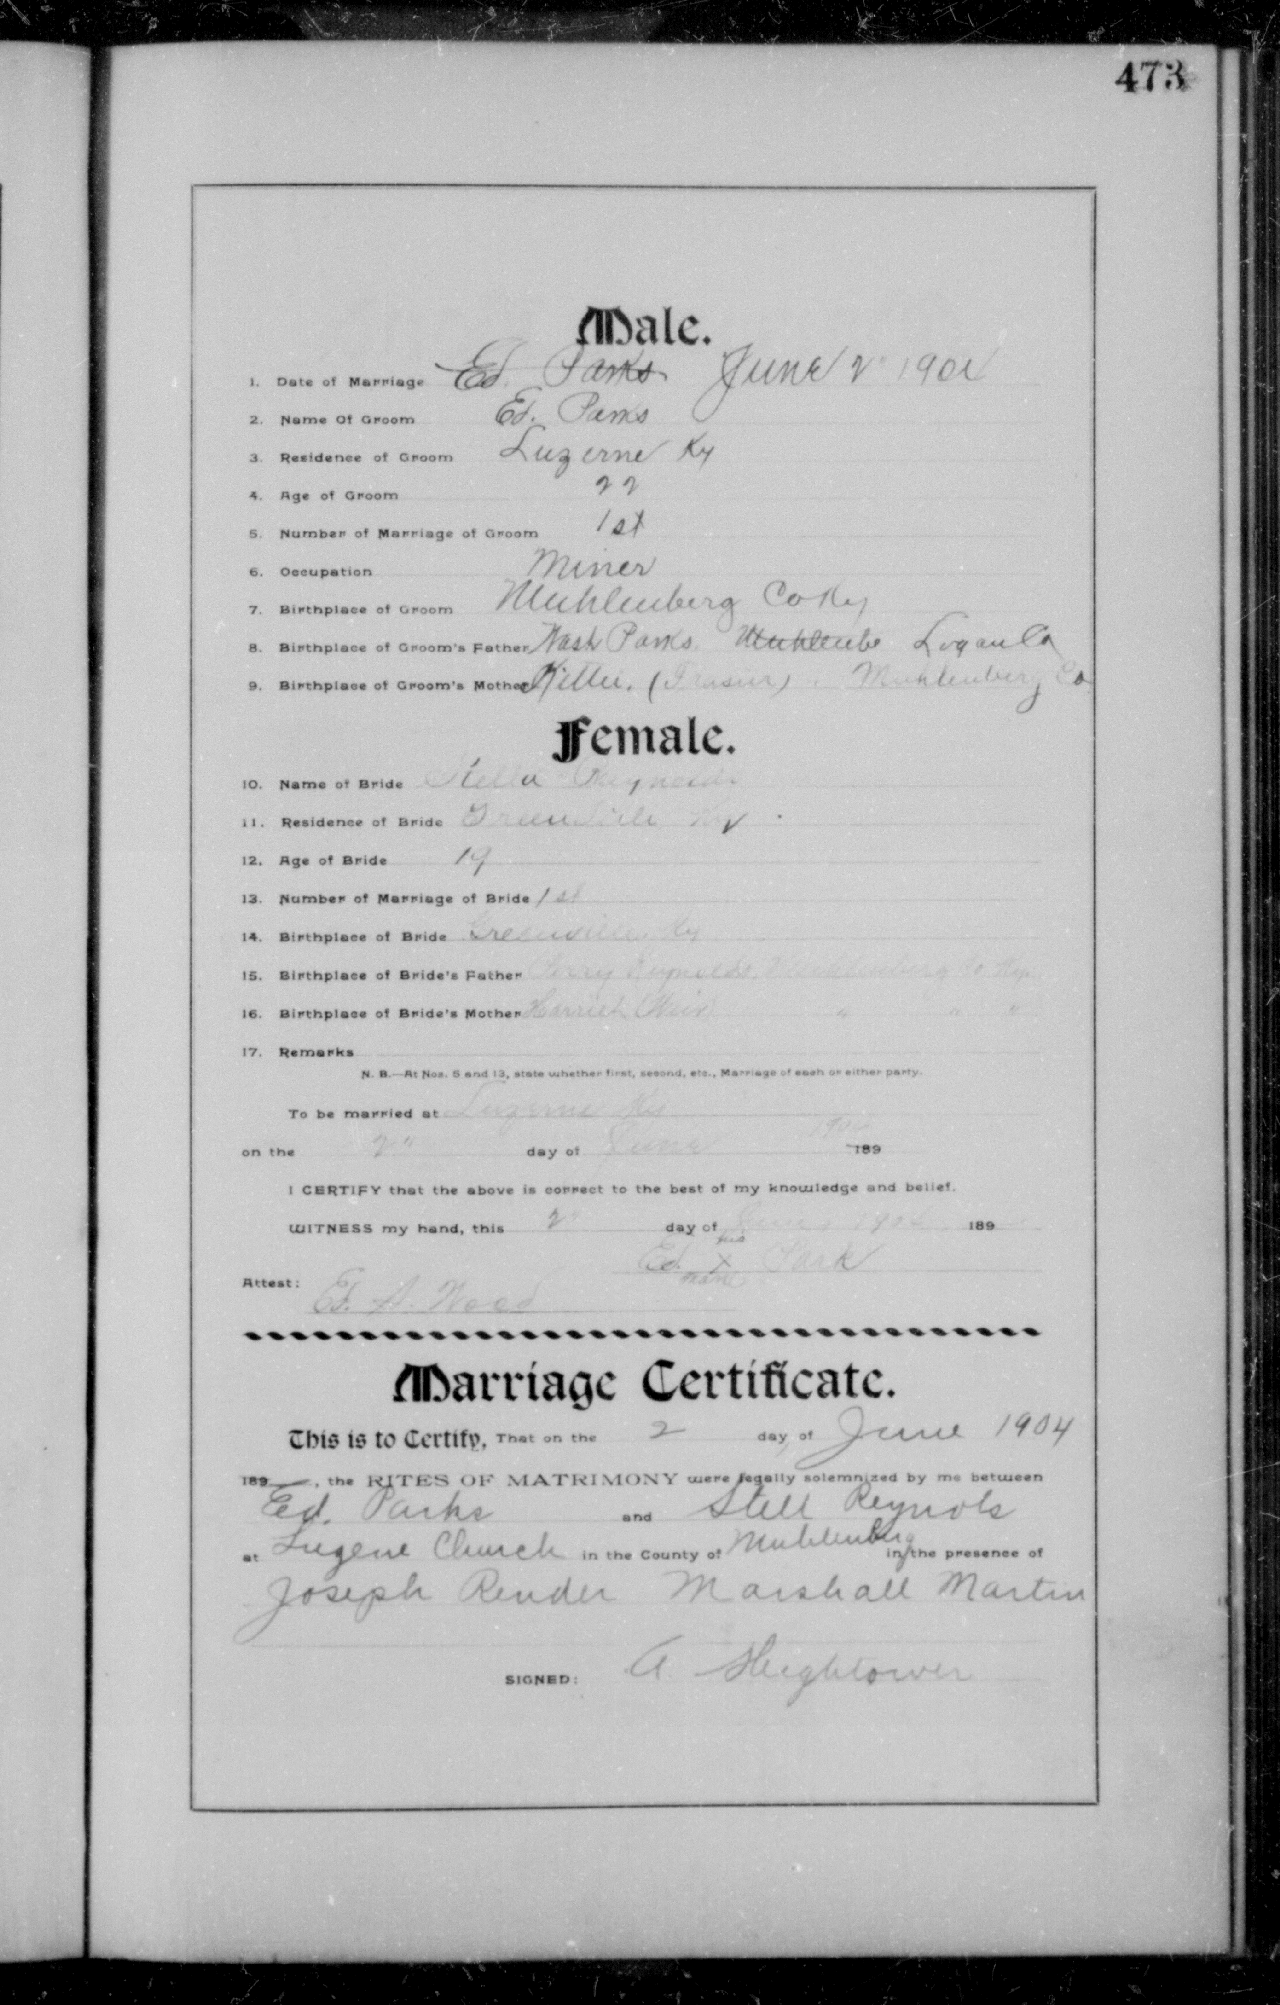 473
Male.
1. Date of Marriage Ed. Parks June 2" 1904
2. Name Of Groom Ed. Parks
3. Residence of Groom Luzerne Ky
4. Age of Groom 22
5. Number of Marriage of Groom 1st
6. Occupation Miner
7. Birthplace of Groom Muhlenberg Co Ky
8. Birthplace of Groom's Father Nash Parks. Muhlenbe Logan Co
9. Birthplace of Groom's Mother Kittie. (Frasier) Muhlenberg Co
Female.
10. Name of Bride Stella Reynolds
11. Residence of Bride Greenville Ky
12. Age of Bride 19
13. Number of Marriage of Bride 1st
14. Birthplace of Bride Greenville Ky
15. Birthplace of Bride's Father Reynolds, Muhlenberg Co Ky.
16. Birthplace of Bride's Mother Harriet (Weir) " " "
17. Remarks
N. B.—At Nos. 5 and 13, state whether first, second, etc., Marriage of each or either party.
To be married at Luzerne Ky
on the 2" day of June 1904 189
I CERTIFY that the above is correct to the best of my knowledge and belief.
WITNESS my hand, this 2" day of June 1904 189
his
Ed. X Park
mark
Attest: Ed. A. Wood
Marriage Certificate.
This is to Certify, That on the 2 day of June 1904
189 , the RITES OF MATRIMONY were legally solemnized by me between
Ed. Parks and Stell Reynols
at Lugene Church in the County of Muhlenberg in the presence of
Joseph Render Marshall Martin
SIGNED: A. Heightower